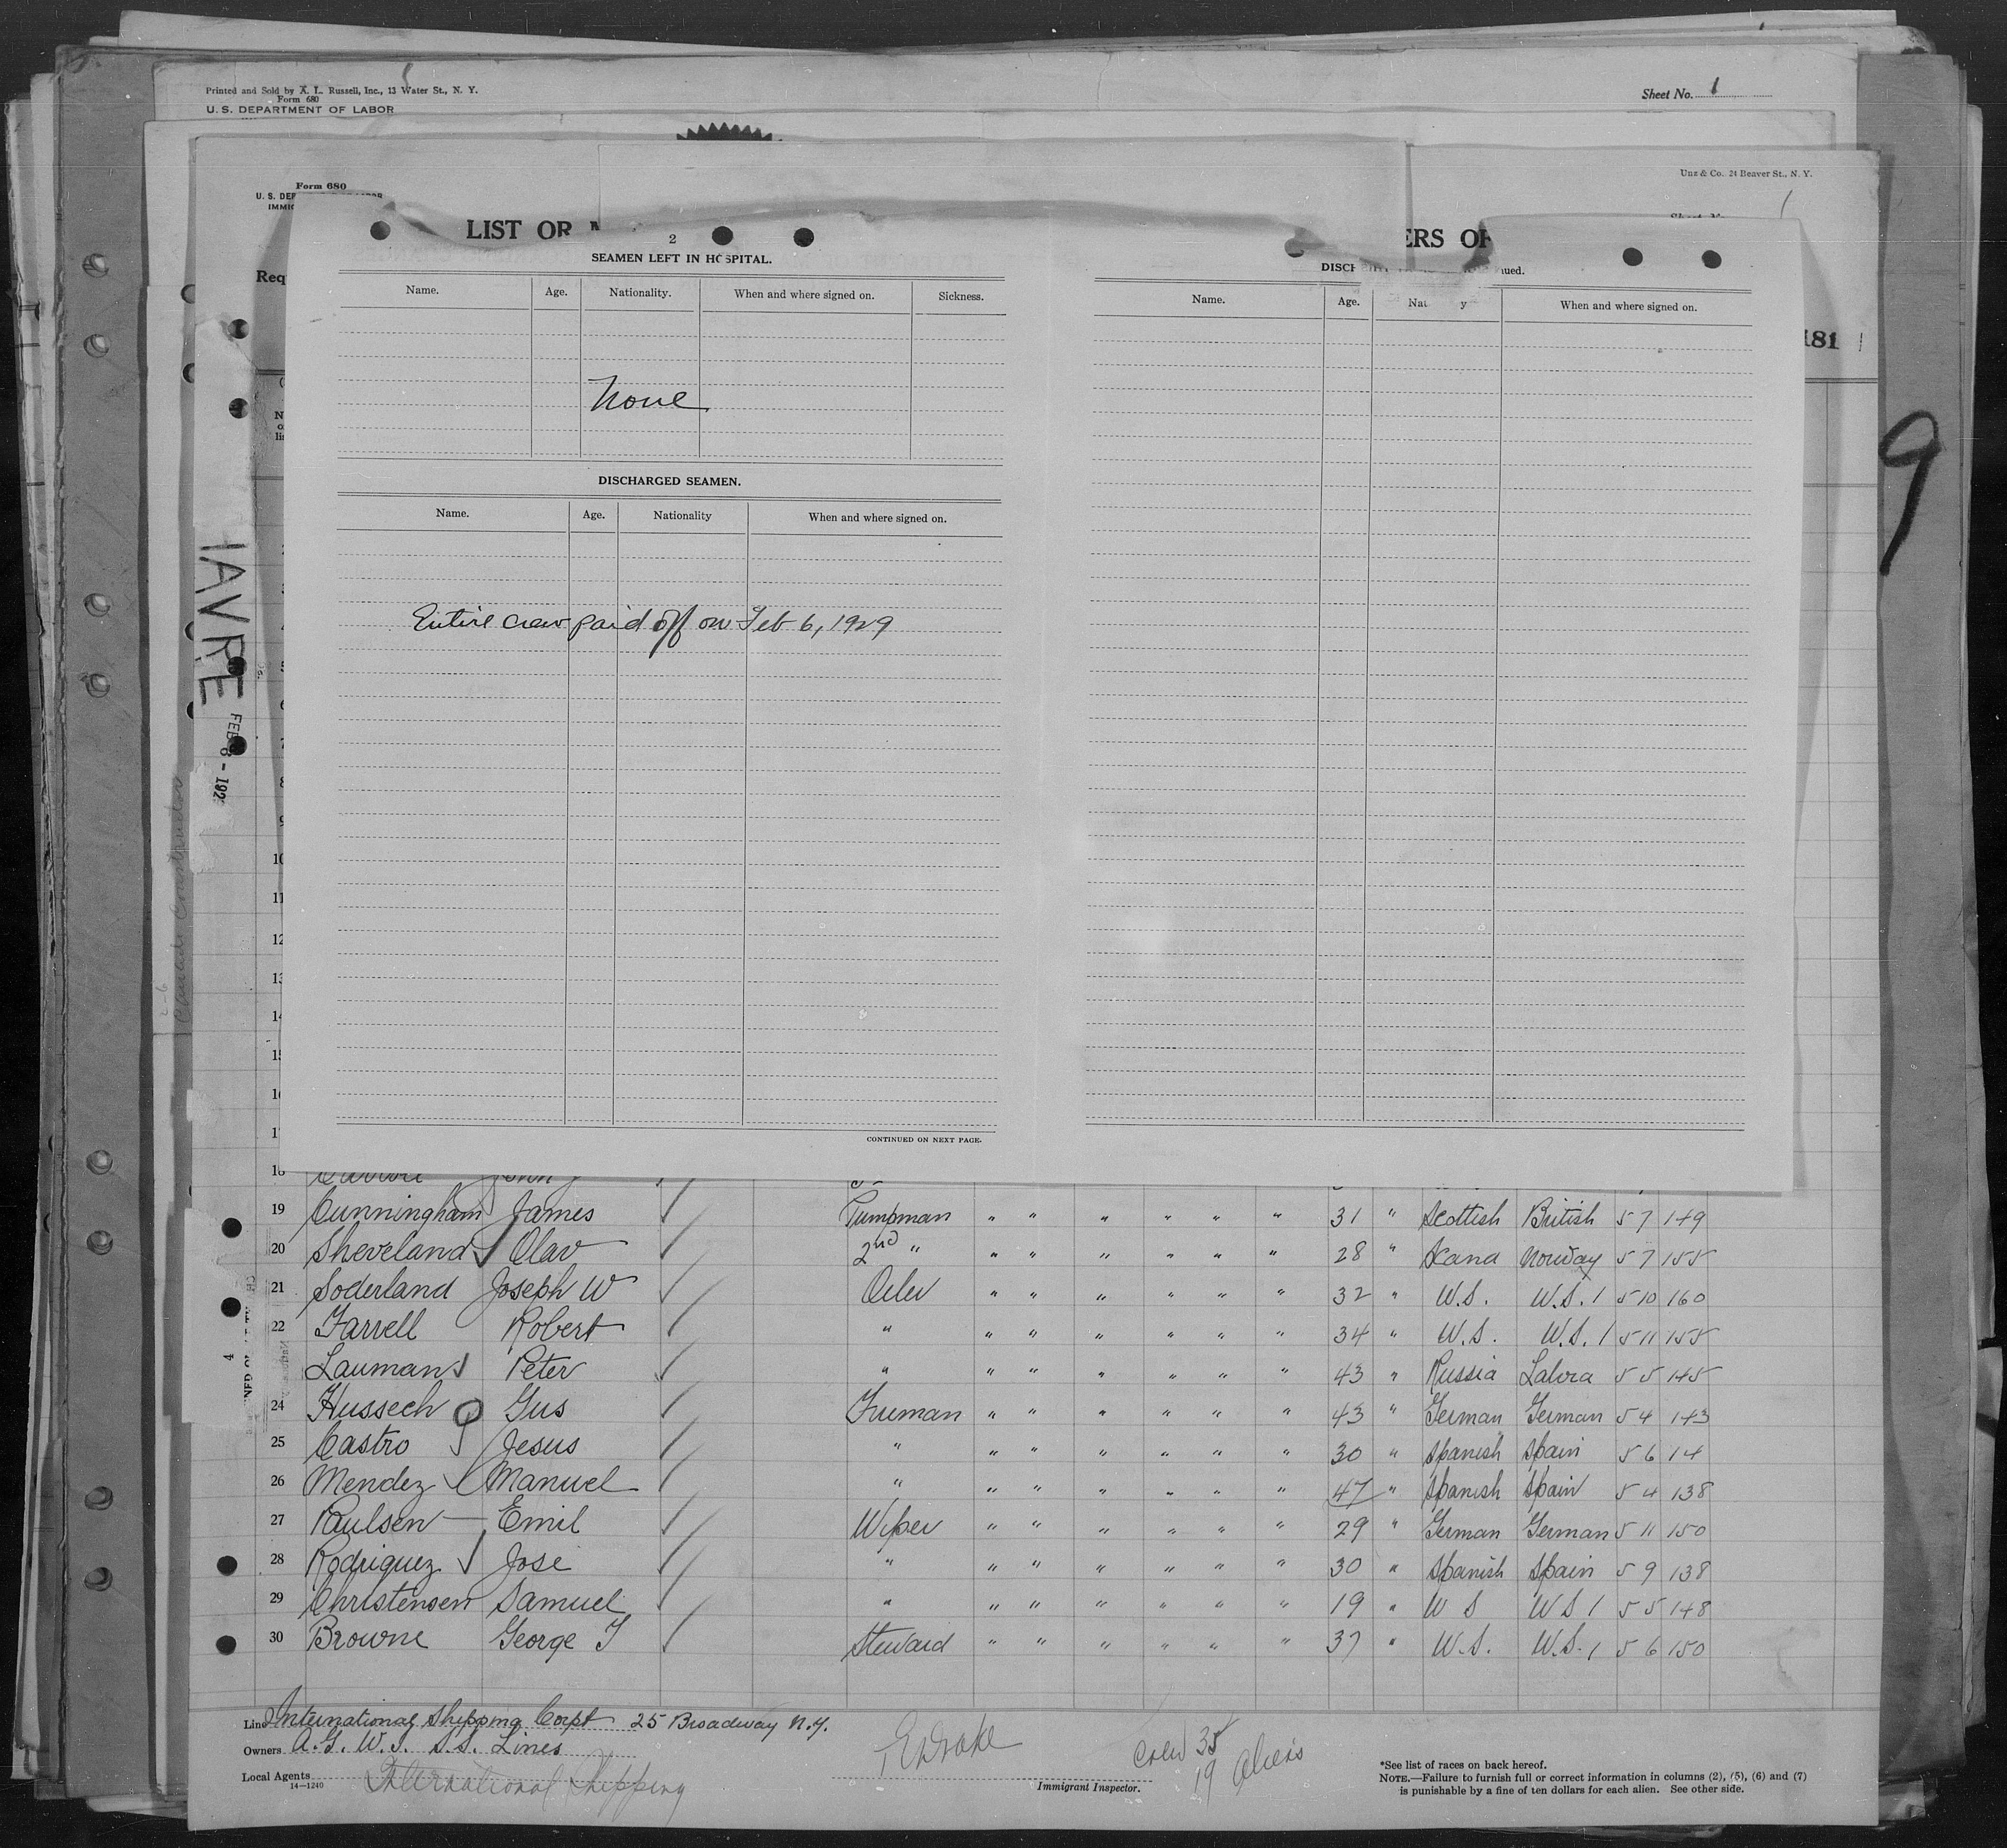 Printed and Sold by A. L. Russell, Inc., 13 Water St., N. Y.
Form 680
U. S. DEPARTMENT OF LABOR
Sheet No. 1
Form 680
Unz & Co. 24 Beaver St., N. Y.
U. S. DEP
IMMIG
LIST OR
ERS OF
Req
181
9
2
SEAMEN LEFT IN HOSPITAL.
Name. Age. Nationality. When and where signed on. Sickness.
None
DISCHARGED SEAMEN.
Name. Age. Nationality When and where signed on.
Entire crew paid off on Feb 6, 1929
CONTINUED ON NEXT PAGE.
DISCH nued.
Name. Age. Nat y When and where signed on.
HAVRE
FEB 6 - 192
10
11
12
13
14
15
18
19 Cunningham James Pumpman " " " " " " 31 " Scottish British 5 7 149
20 Sheveland Olav 2nd " " " " " " " 28 " Scand Norway 5 7 155
21 Soderland Joseph W Oiler " " " " " " 32 " U.S. U.S. 1 5 10 160
22 Farrell Robert " " " " " " " 34 " U.S. U.S. 1 5 11 155
Lauman Peter " " " " " " " 43 " Russia 5 5 145
24 Hussech Gus Fireman " " " " " " 43 " German German 5 4 143
25 Castro Jesus " " " " " " " 30 " Spanish Spain 5 6 14
26 Mendez Manuel " " " " " " " 47 " Spanish Spain 5 4 138
27 Paulsen Emil Wiper " " " " " " 29 " German German 5 11 150
28 Rodriguez Jose " " " " " " " 30 " Spanish Spain 5 9 138
29 Christensen Samuel " " " " " " " 19 " U S U S 1 5 5 148
30 Browne George T Steward " " " " " " 37 " U.S. U.S. 1 5 6 150
Line International Shipping Corpt 25 Broadway N.Y.
Owners A. G. W. I. S.S. Lines
Local Agents International Shipping
14—1240
E Drake
Immigrant Inspector.
Crew 35
19 Aliens
*See list of races on back hereof.
NOTE.—Failure to furnish full or correct information in columns (2), (5), (6) and (7)
is punishable by a fine of ten dollars for each alien. See other side.